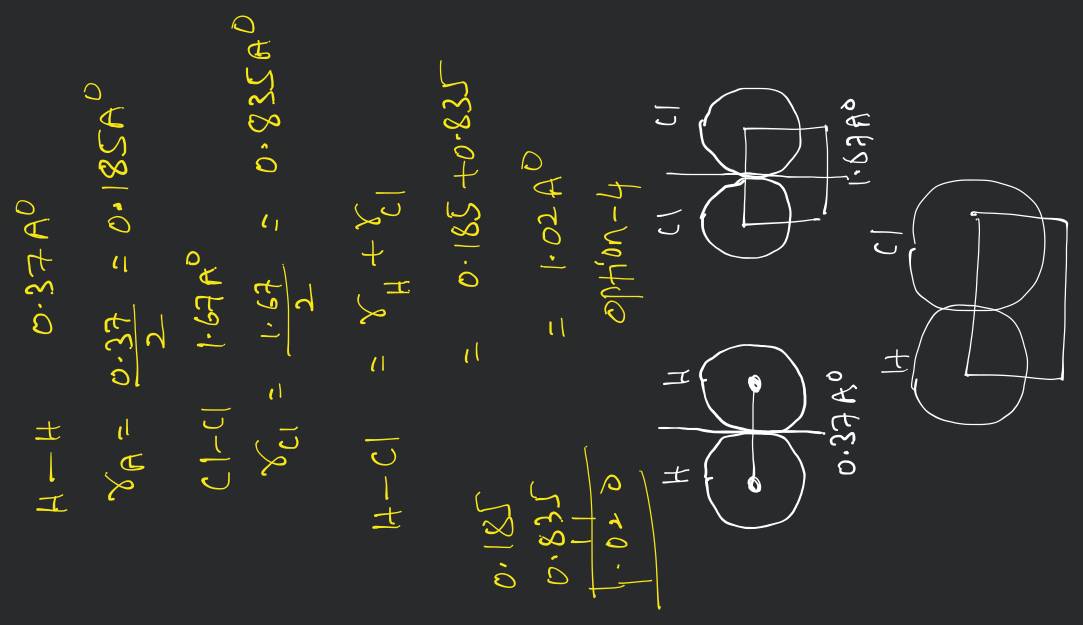 H—H 0.37A⁰
γA = 0.37/2 = 0.185A⁰
Cl—Cl 1.67A⁰
γCl = 1.67/2 = 0.835A⁰
H—Cl = γH + γCl
= 0.185 +0.835
= 1.02A⁰
option-4
0.185
0.835
1.020
H H
0.37A⁰
Cl Cl
1.67A⁰
H Cl